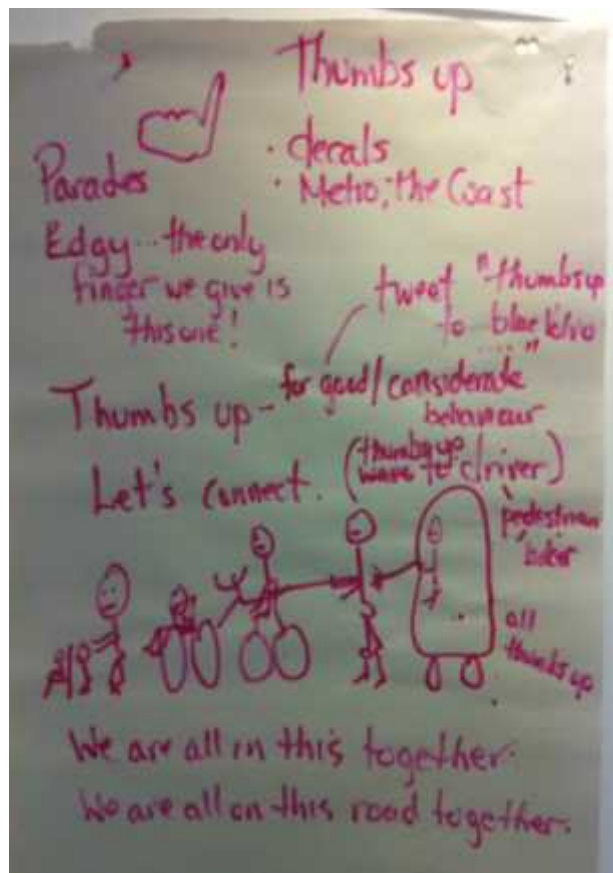 Thumbs up
· decals
· Metro, the Coast
Parades
Edgy... the only
finger we give is
this one!
tweet "thumbs up
to blue Volvo
...."
Thumbs up - for good/considerate
behaviour
Let's connect. (thumbs up
wave to driver)
pedestrian
biker
all
thumbs up
We are all in this together.
We are all on this road together.